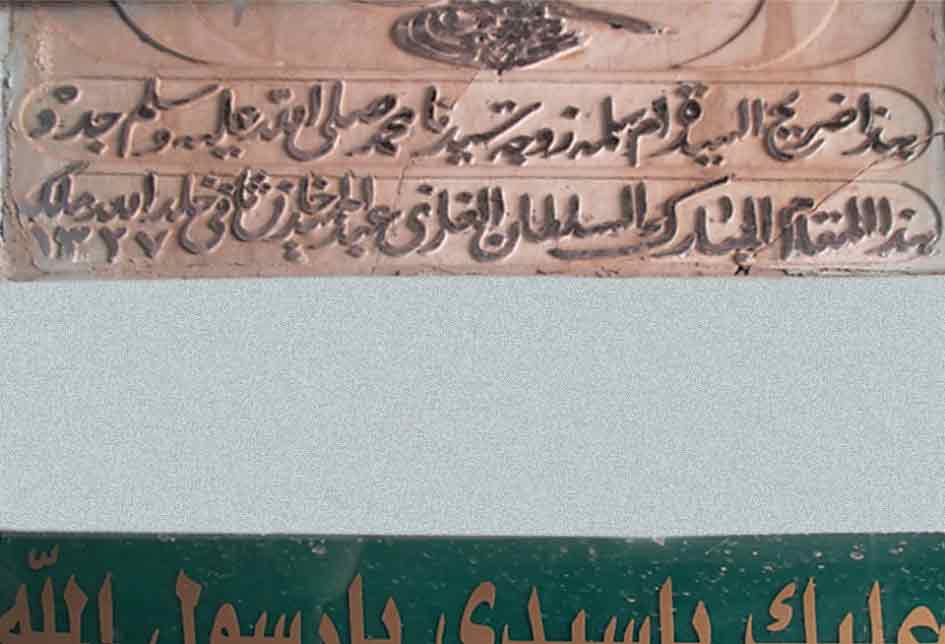 هذا ضريح السيدة ام سلمه زوجة سيدنا محمد صلى الله عليه وسلم جدده
هذا المقام المبارك السلطان الغازي عبد الحميد خان ثاني خلد الله ملكه
١٣٢٧
عليك ياسيدي يارسول اللّه